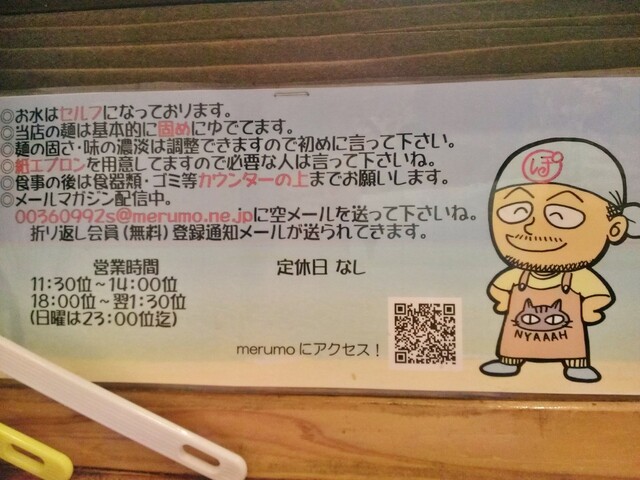 ◎お水はセルフになっております。
◎当店の麺は基本的に固めにゆでてます。
◎麺の固さ・味の濃淡は調整できますので初めに言って下さい。
◎紙エプロンを用意してますので必要な人は言って下さいね。
◎食事の後は食器類・ゴミ等カウンターの上までお願いします。
◎メールマガジン配信中。
00360992s@merumo.ne.jpに空メールを送って下さいね。
折り返し会員(無料)登録通知メールが送られてきます。
営業時間
11:30位～14:00位
18:00位～翌1:30位
(日曜は23:00位迄)
定休日 なし
merumoにアクセス！
ぽ
NYAAAH